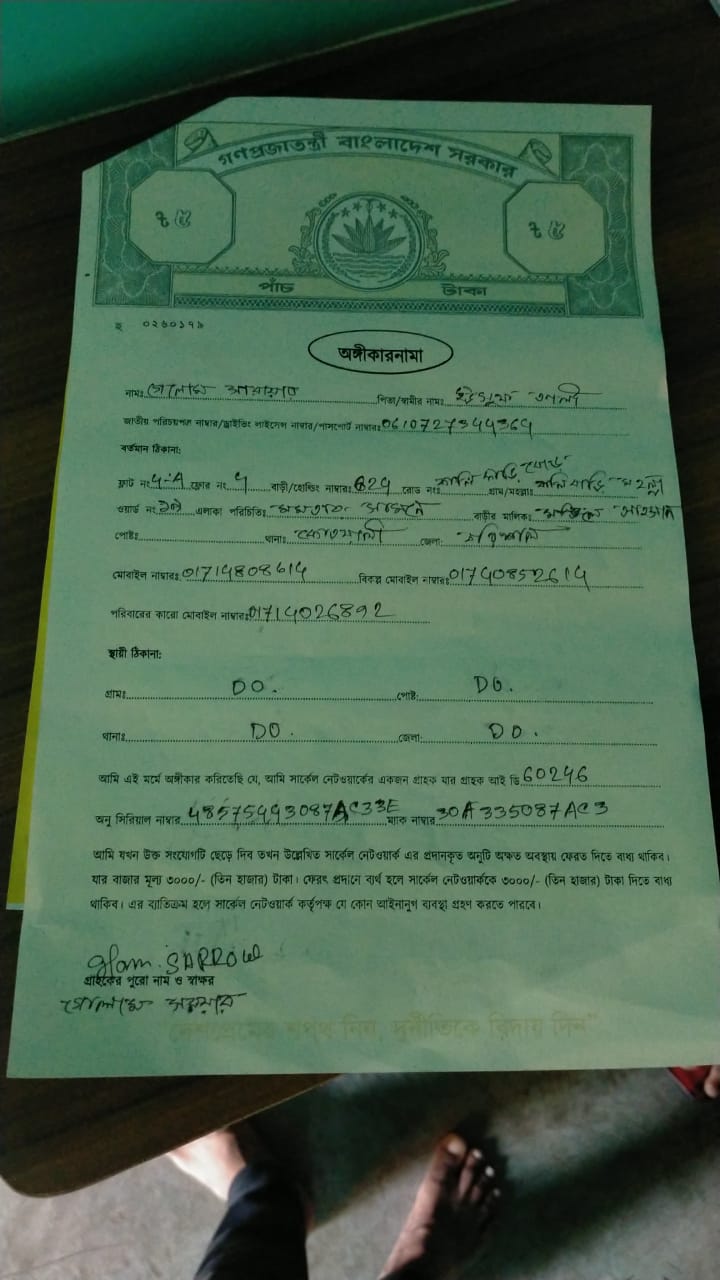 গণপ্রজাতন্ত্রী বাংলাদেশ সরকার
৳ ৫ ৳ ৫
পাঁচ টাকা
হ ০২৬০১৭৯
অঙ্গীকারনামা
নামঃ গোলাম সারোয়ার পিতা/স্বামীর নামঃ আলী
জাতীয় পরিচয়পত্র নাম্বার/ড্রাইভিং লাইসেন্স নাম্বার/পাসপোর্ট নাম্বারঃ
বর্তমান ঠিকানা:
ফ্লাট নং 4-A ফ্লোর নং 4 বাড়ী/হোল্ডিং নাম্বারঃ রোড নংঃ কালি বাড়ি রোড গ্রাম/মহল্লাঃ কালি বাড়ি মহল্লা
ওয়ার্ড নং এলাকা পরিচিতিঃ বাড়ীর মালিকঃ
পোষ্টঃ থানাঃ কোতয়ালী জেলা: বরিশাল
মোবাইল নাম্বারঃ 01714808614 বিকল্প মোবাইল নাম্বারঃ 01740852614
পরিবারের কারো মোবাইল নাম্বারঃ 01714026892
স্থায়ী ঠিকানা:
গ্রামঃ DO. পোষ্ট: DO.
থানাঃ DO. জেলা: DO.
আমি এই মর্মে অঙ্গীকার করিতেছি যে, আমি সার্কেল নেটওয়ার্কের একজন গ্রাহক যার গ্রাহক আই ডি 60246
অনু সিরিয়াল নাম্বার 48575443087AC33E ম্যাক নাম্বার 30A335087AC3
আমি যখন উক্ত সংযোগটি ছেড়ে দিব তখন উল্লেখিত সার্কেল নেটওয়ার্ক এর প্রদানকৃত অনুটি অক্ষত অবস্থায় ফেরত দিতে বাধ্য থাকিব।
যার বাজার মূল্য ৩০০০/- (তিন হাজার) টাকা। ফেরৎ প্রদানে ব্যর্থ হলে সার্কেল নেটওয়ার্ককে ৩০০০/- (তিন হাজার) টাকা দিতে বাধ্য
থাকিব। এর ব্যতিক্রম হলে সার্কেল নেটওয়ার্ক কর্তৃপক্ষ যে কোন আইনানুগ ব্যবস্থা গ্রহণ করতে পারবে।
গ্রাহকের পুরো নাম ও স্বাক্ষর
গোলাম সারোয়ার
"দেশপ্রেমের শপথ নিন, দুর্নীতিকে বিদায় দিন"